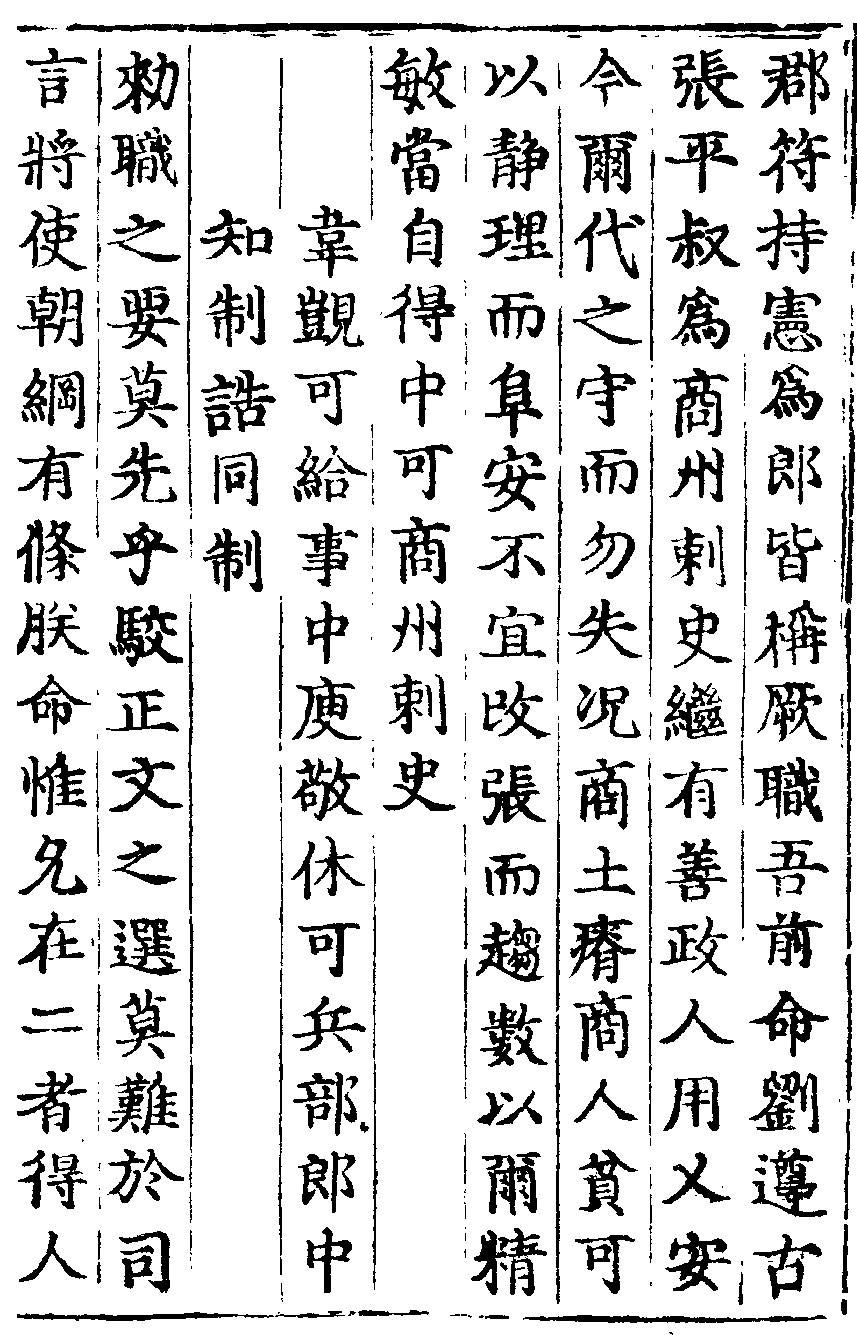 郡符持憲為郎皆稱厥職吾前命劉遵古
張平叔為商州刺史繼有善政人用乂安
今爾代之守而勿失况商土瘠商人貧可
以静理而阜安不宜改張而趨數以爾精
敏當自得中可商州刺史
韋覬可給事中庾敬休可兵部郎中
知制誥同制
勑職之要莫先乎駮正文之選莫難於司
言將使朝綱有條朕命惟允在二者得人